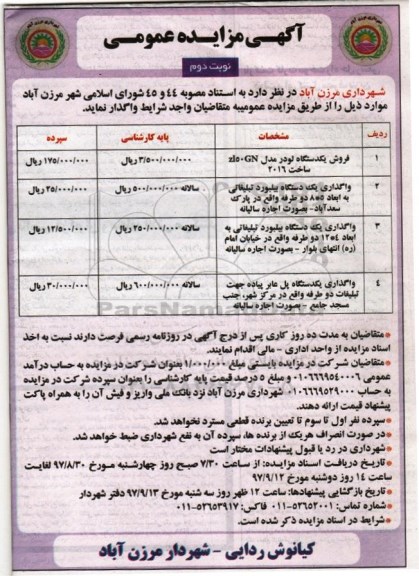 آگهی مزایده عمومی
نوبت دوم
شهرداری مرزن آباد در نظر دارد به استناد مصوبه ۴۴ و ۴۵ شورای اسلامی شهر مرزن آباد
موارد ذیل را از طریق مزایده عمومیبه متقاضیان واجد شرایط واگذار نماید.
ردیف مشخصات پایه کارشناسی سپرده
۱ فروش یکدستگاه لودر مدل zl۵۰GN ساخت ۲۰۱۶ ۳/۵۰۰/۰۰۰/۰۰۰ ریال ۱۷۵/۰۰۰/۰۰۰ ریال
۲ واگذاری یک دستگاه بیلبورد تبلیغاتی به ابعاد ۵*۸ دو طرفه واقع در پارک سعدآباد- بصورت اجاره سالیانه سالانه ۵۰۰/۰۰۰/۰۰۰ ریال ۲۵/۰۰۰/۰۰۰ ریال
۳ واگذاری یک دستگاه بیلبورد تبلیغاتی به ابعاد ۴*۱۲ دو طرفه واقع در خیابان امام (ره) انتهای بلوار - بصورت اجاره سالیانه سالانه ۲۵۰/۰۰۰/۰۰۰ ریال ۱۲/۵۰۰/۰۰۰ ریال
۴ واگذاری یکدستگاه پل عابر پیاده جهت تبلیغات دو طرفه واقع در مرکز شهر، جنب مسجد جامع - بصورت اجاره سالیانه سالانه ۶۰۰/۰۰۰/۰۰۰ ریال ۳۰/۰۰۰/۰۰۰ ریال
*متقاضیان به مدت ده روز کاری پس از درج آگهی در روزنامه رسمی فرصت دارند نسبت به اخذ
اسناد مزایده از واحد اداری - مالی اقدام نمایند.
*متقاضیان شرکت در مزایده بایستی مبلغ ۱/۰۰۰/۰۰۰ بعنوان شرکت در مزایده به حساب درآمد
عمومی ۰۱۰۶۶۶۹۵۴۰۰۰۶ و مبلغ ۵ درصد قیمت پایه کارشناسی را بعنوان سپرده شرکت در مزایده
به حساب ۰۱۰۶۶۶۹۵۲۹۰۰۰ شهرداری مرزن آباد نزد بانک ملی واریز و فیش آن را به همراه پاکت
پیشنهاد قیمت ارائه دهند.
*سپرده نفر اول تا سوم تا تعیین برنده قطعی مسترد نخواهد شد.
*در صورت انصراف هریک از برنده ها، سپرده آن به نفع شهرداری ضبط خواهد شد.
*شهرداری در رد یا قبول پیشنهادات مختار است
*تاریخ دریافت اسناد مزایده: از ساعت ۷/۳۰ صبح روز چهارشنبه مورخ ۹۷/۸/۳۰ لغایت
ساعت ۱۴ روز دوشنبه مورخ ۹۷/۹/۱۲
*تاریخ بازگشایی پیشنهادها: ساعت ۱۲ ظهر روز سه شنبه مورخ ۹۷/۹/۱۳ دفتر شهردار
*شماره تماس: ۵۲۶۵۲۰۰۱-۰۱۱ فاکس: ۵۲۶۵۳۹۱۷-۰۱۱
*شرایط در اسناد مزایده ذکر شده است.
کیانوش ردایی - شهردار مرزن آباد